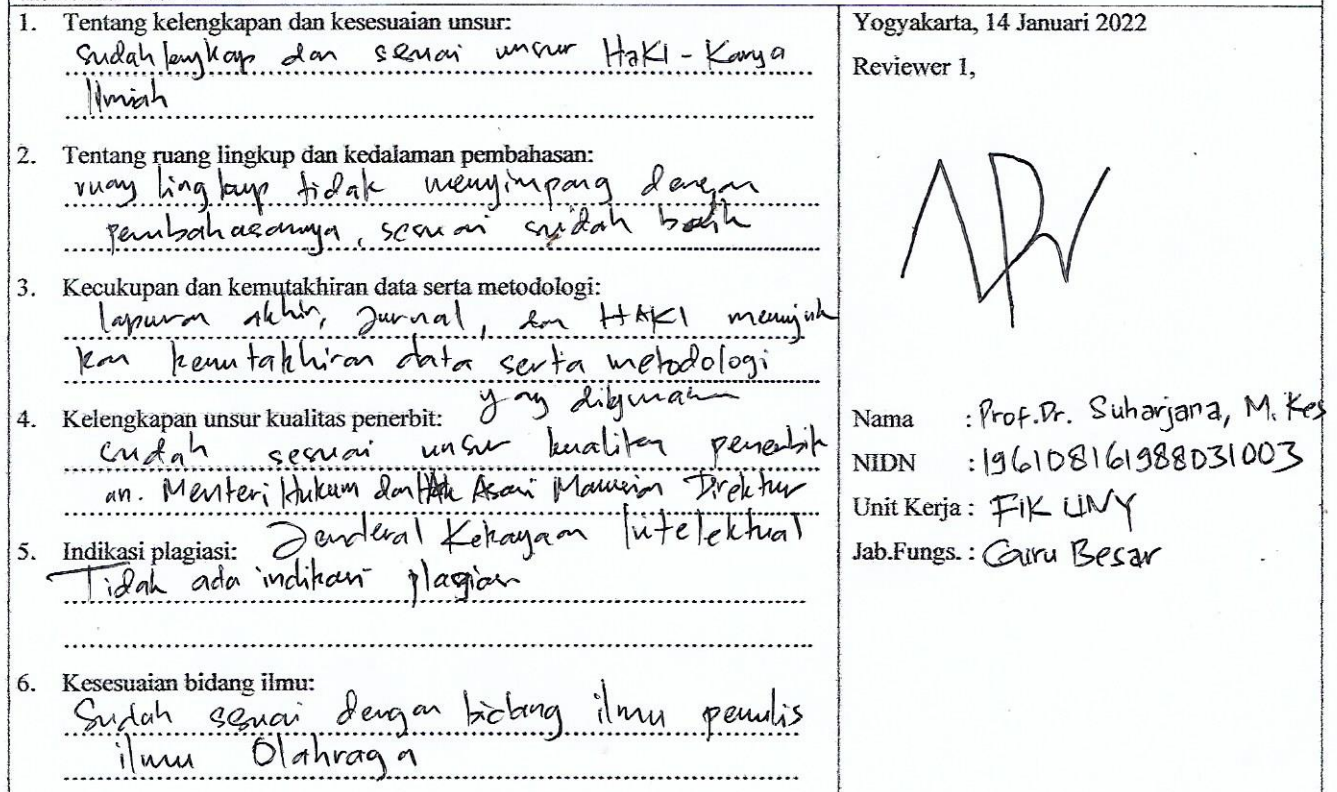 1. Tentang kelengkapan dan kesesuaian unsur:
Sudah lengkap dan sesuai unsur HaKI - Karya
Ilmiah
2. Tentang ruang lingkup dan kedalaman pembahasan:
ruang lingkup tidak menyimpang dengan
pembahasannya, sesuai sudah baik
3. Kecukupan dan kemutakhiran data serta metodologi:
lapuran akhir, Jurnal, dan HAKI menunjuk
kan kemutakhiran data serta metodologi
yang digunakan
4. Kelengkapan unsur kualitas penerbit:
sudah sesuai unsur kualitas penerbit
an. Menteri Hukum dan Hak Asasi Manusia Direktur
Jenderal Kekayaan Intelektual
5. Indikasi plagiasi:
Tidak ada indikasi plagian
6. Kesesuaian bidang ilmu:
Sudah sesuai dengan bidang ilmu penulis
ilmu Olahraga
Yogyakarta, 14 Januari 2022
Reviewer 1,
Nama : Prof.Dr. Suharjana, M. Kes
NIDN : 196108161988031003
Unit Kerja : FIK UNY
Jab.Fungs. : Guru Besar